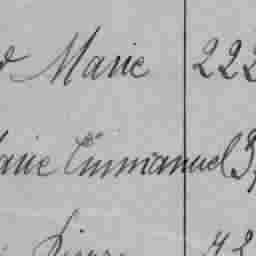 Marie 222
Marie Emmanuel 3
Pierre 42